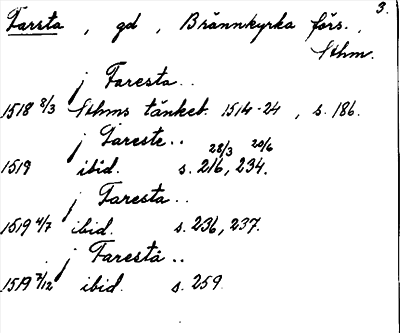 3.
Farsta, gd, Brännkyrka förs.,
Sthm.
j Faresta..
1518 8/3 Sthms tänkeb. 1514-24, s. 186.
j Fareste..
1519 ibid. s. 216, 28/3 234. 20/6
j Faresta..
1519 4/7 ibid. s. 236, 237.
j Farestä..
1519 7/12 ibid. s. 259.